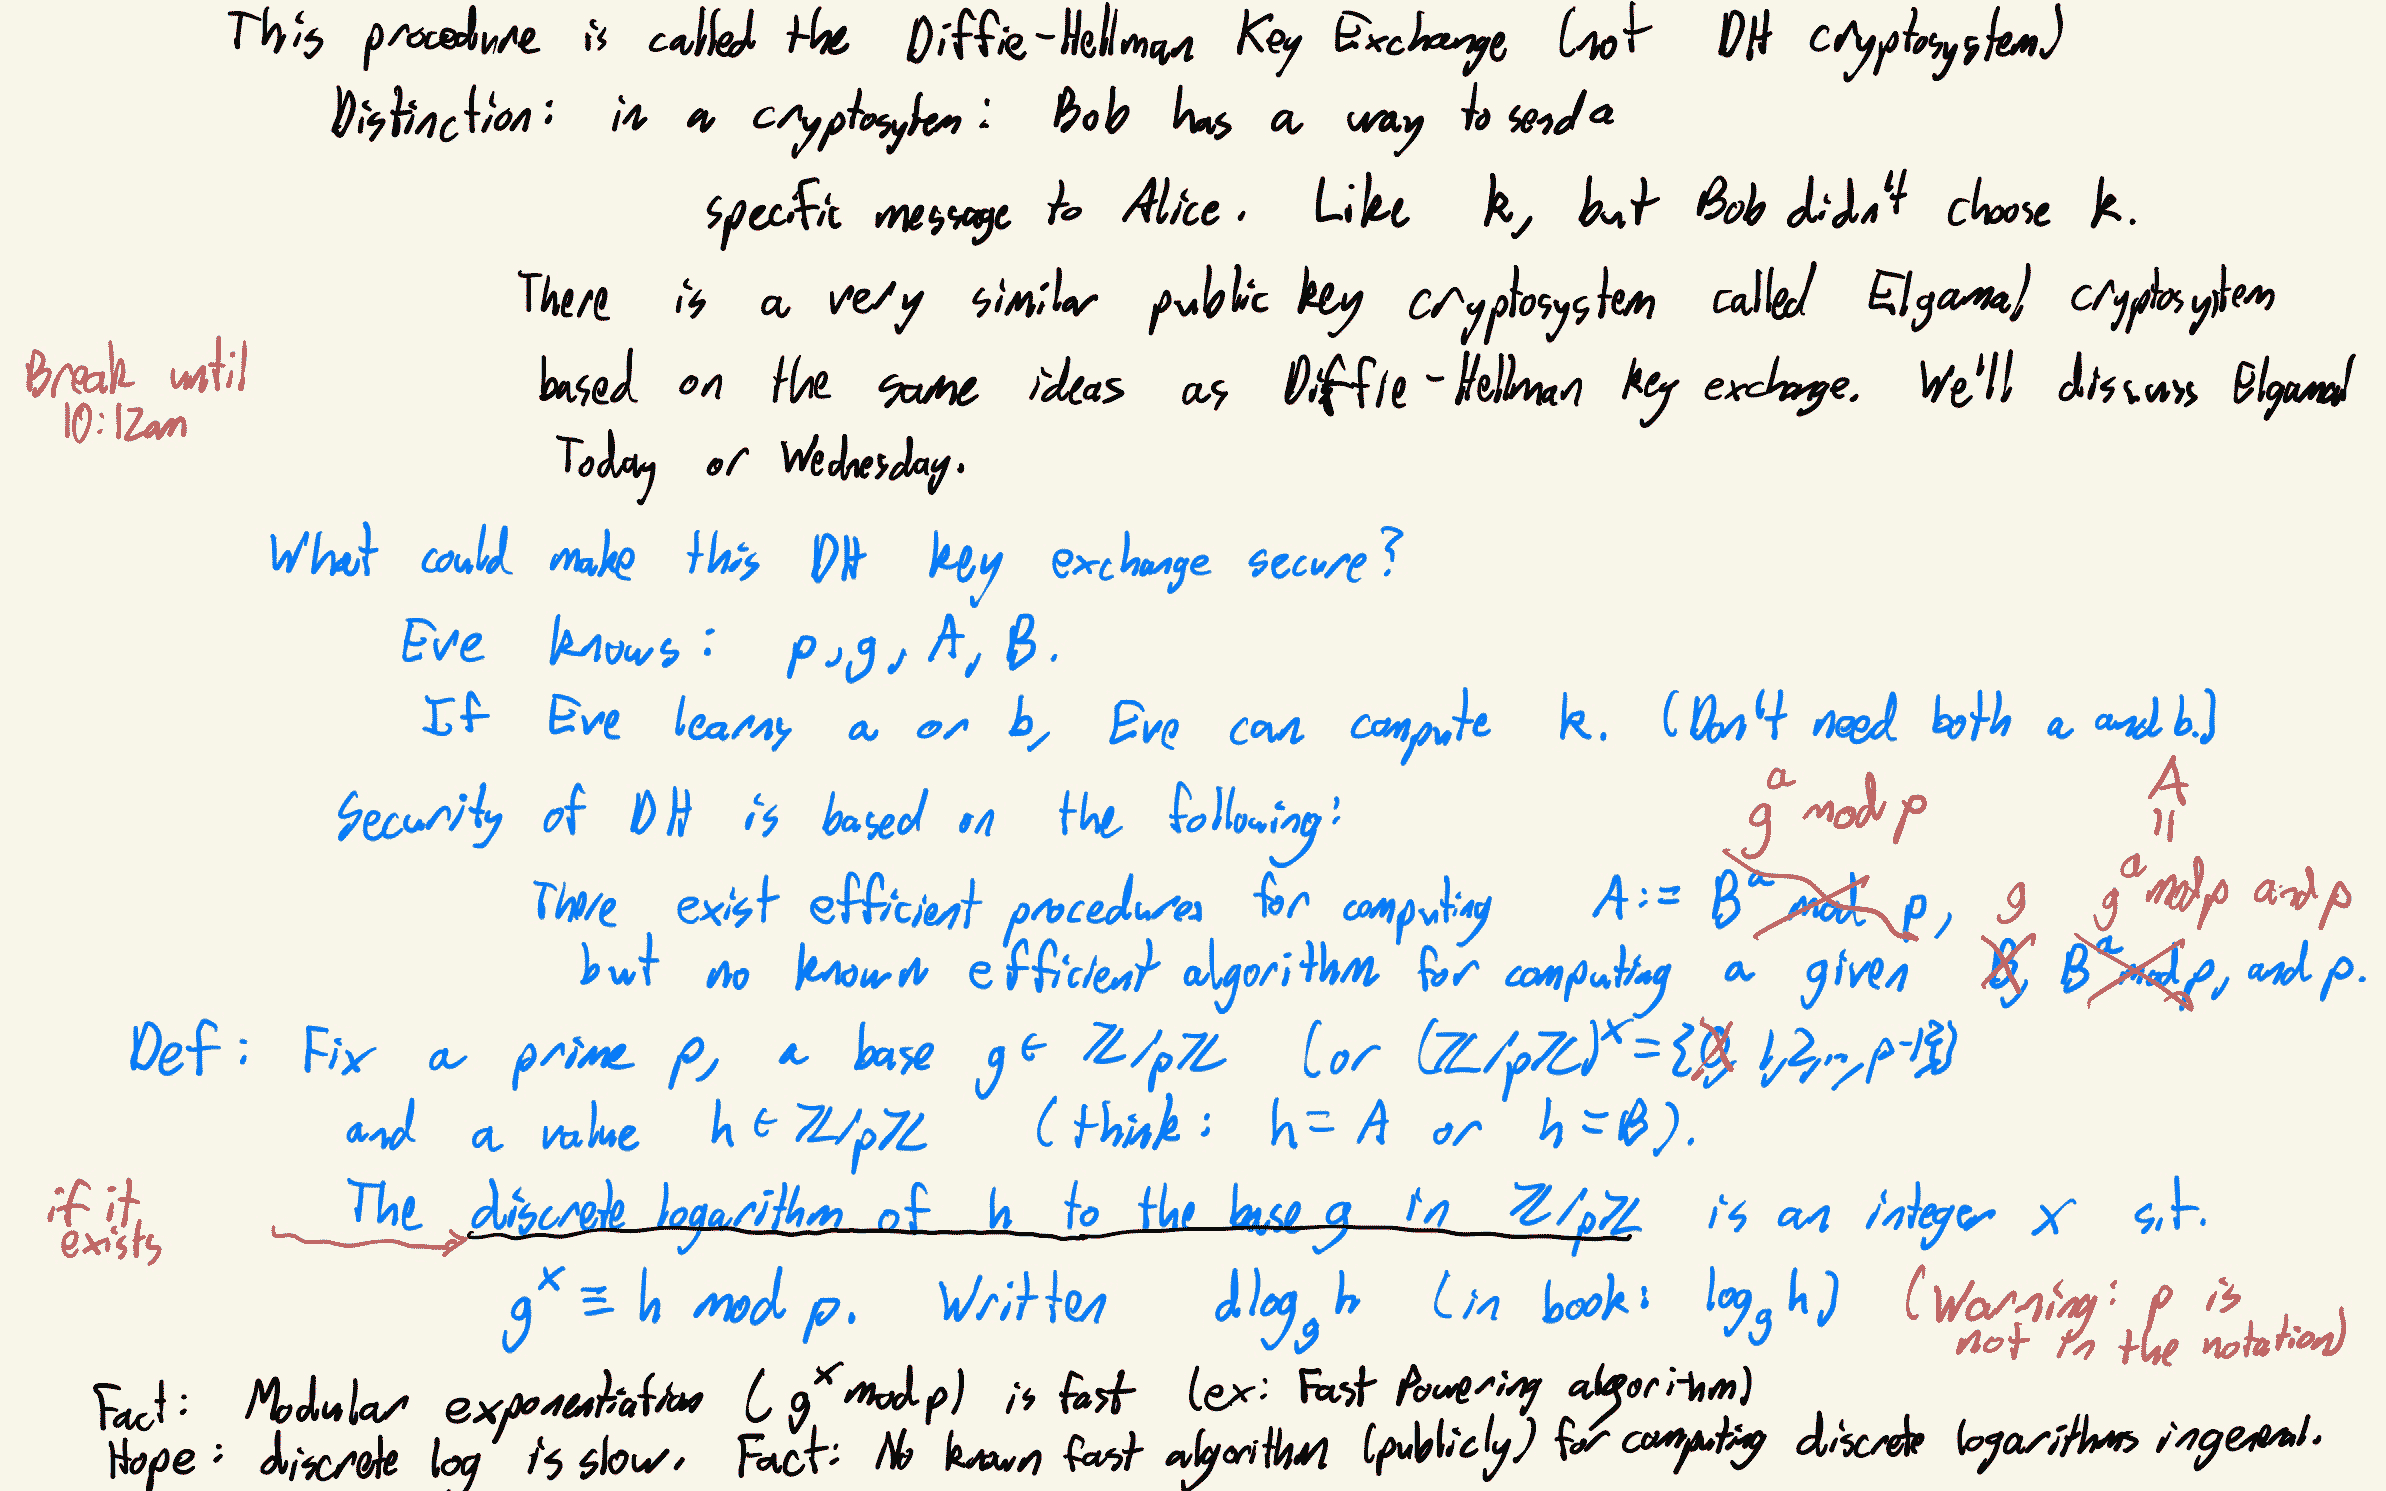 This procedure is called the Diffie-Hellman Key Exchange (not DH cryptosystem)
Distinction: in a cryptosytem: Bob has a way to send a
specific message to Alice. Like k, but Bob didn't choose k.
There is a very similar public key cryptosystem called Elgamal cryptosytem
Break until
10:12am
based on the same ideas as Diffie-Hellman key exchange. We'll discuss Elgamal
Today or Wednesday.
What could make this DH key exchange secure?
Eve knows: p, g, A, B.
If Eve learns a or b, Eve can compute k. (Don't need both a and b.)
Security of DH is based on the following:
g^a mod p
A
||
There exist efficient procedures for computing A := B^a mod p,
g g^a mod p and p
but no known efficient algorithm for computing a given B, B^a mod p, and p.
Def: Fix a prime p, a base g ∈ ℤ/pℤ (or (ℤ/pℤ)^× = {0, 1, 2, ..., p-1})
and a value h ∈ ℤ/pℤ (think: h = A or h = B).
if it
exists
The discrete logarithm of h to the base g in ℤ/pℤ is an integer x s.t.
g^x ≡ h mod p. Written dlog_g h (in book: log_g h) (Warning: p is
not in the notation)
Fact: Modular exponentiation (g^x mod p) is fast (ex: Fast Powering algorithm)
Hope: discrete log is slow. Fact: No known fast algorithm (publicly) for computing discrete logarithms in general.